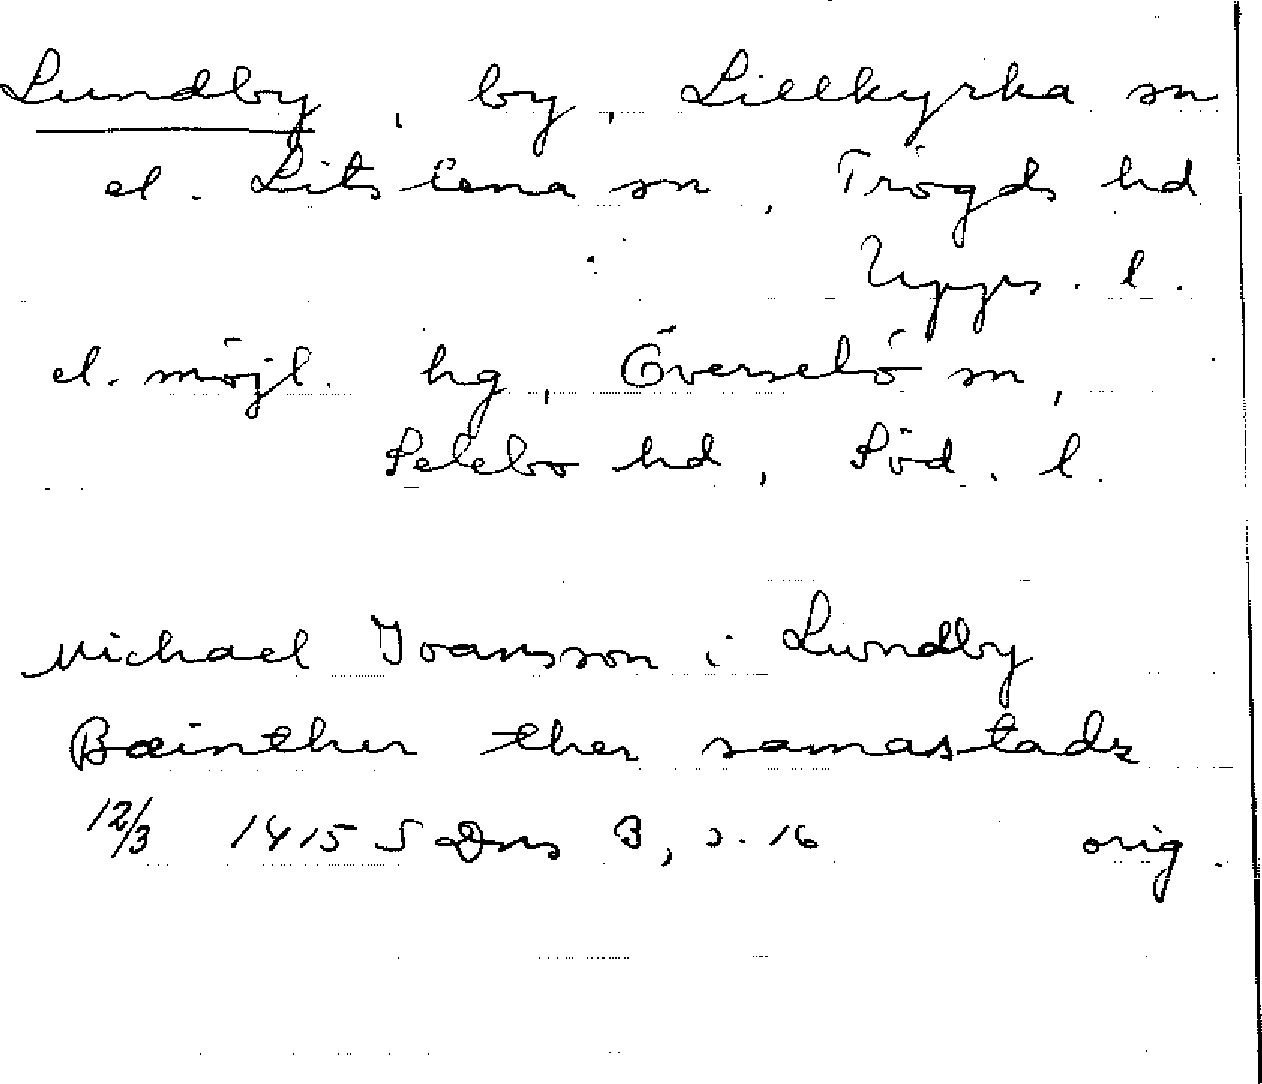 Lundby, by, Lillkyrka sn
el. Litslena sn, Trögds hd
Upps. l.
el. möjl. hg, Överselö sn,
Selebo hd, Söd. l.
Michael Joansson i Lundby
Bæinther ther samastadz
12/3 1415 SDns 3, s. 16 orig.